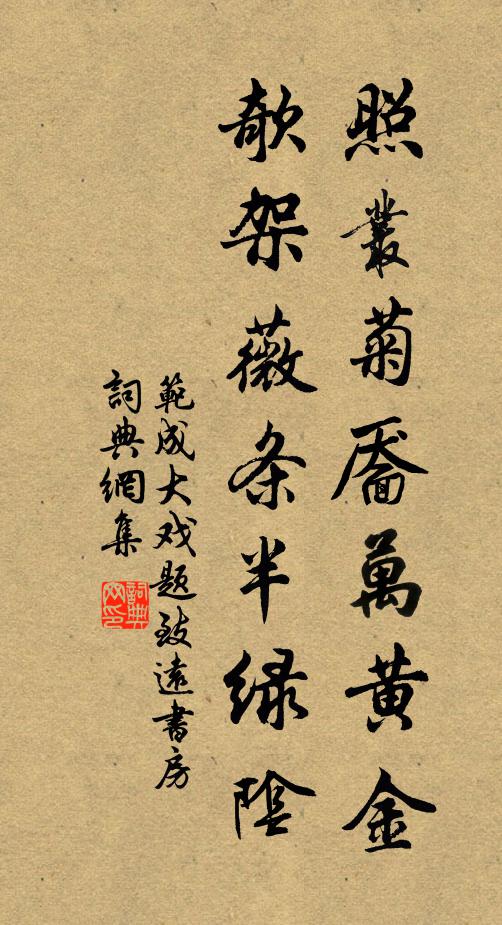 照叢菊靨萬黃金
欹架薇条半緑陰
範成大戏题致遠書房
詞典網集
詞典网印